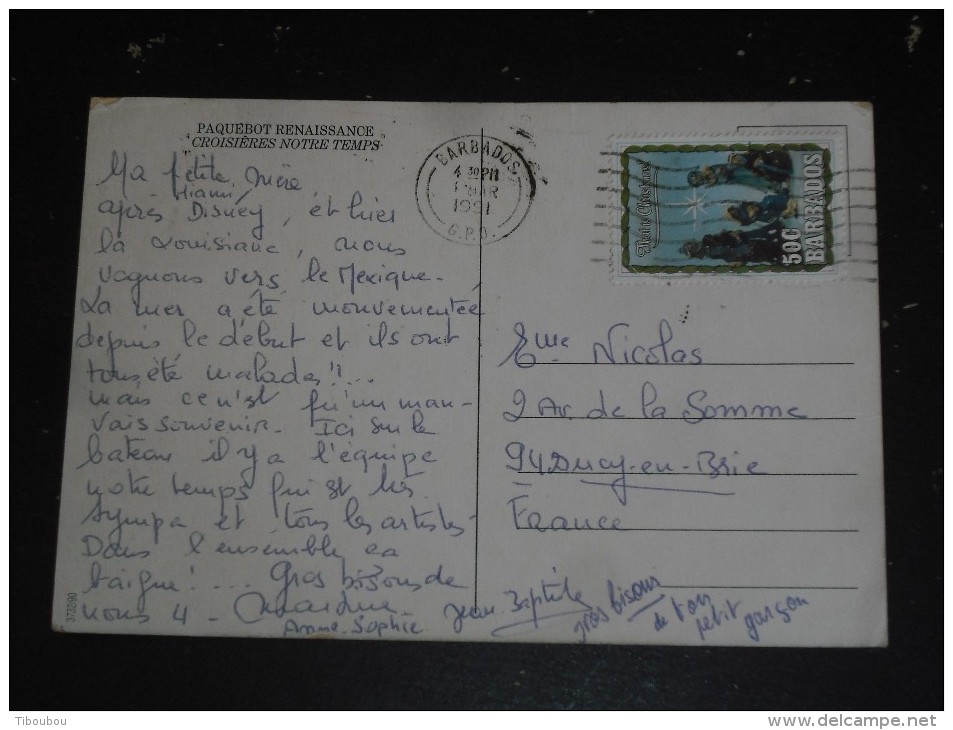 PAQUEBOT RENAISSANCE
CROISIÈRES NOTRE TEMPS
Ma petite mère
Miami
après Disney, et hier
la Louisiane, nous
voguons vers le Mexique.
La mer a été mouvementée
depuis le début et ils ont
tous été malades!!...
mais ce n'est qu'un mau-
vais souvenir. Ici sur le
bateau il y a l'équipe
notre temps qui est très
sympa et tous les artistes.
Dans l'ensemble ça
baigne!... Gros bisous de
nous 4.
Anne-Sophie
Jean-Baptiste
gros bisous
de ton
petit
garçon
373890
BARBADOS
4 30 PM
1 MAR
1991
G.P.O.
50c
BARBADOS
Nicolas
2 Av. de la Somme
94 Sucy-en-Brie
France
Tiboubou
www.delcampe.net